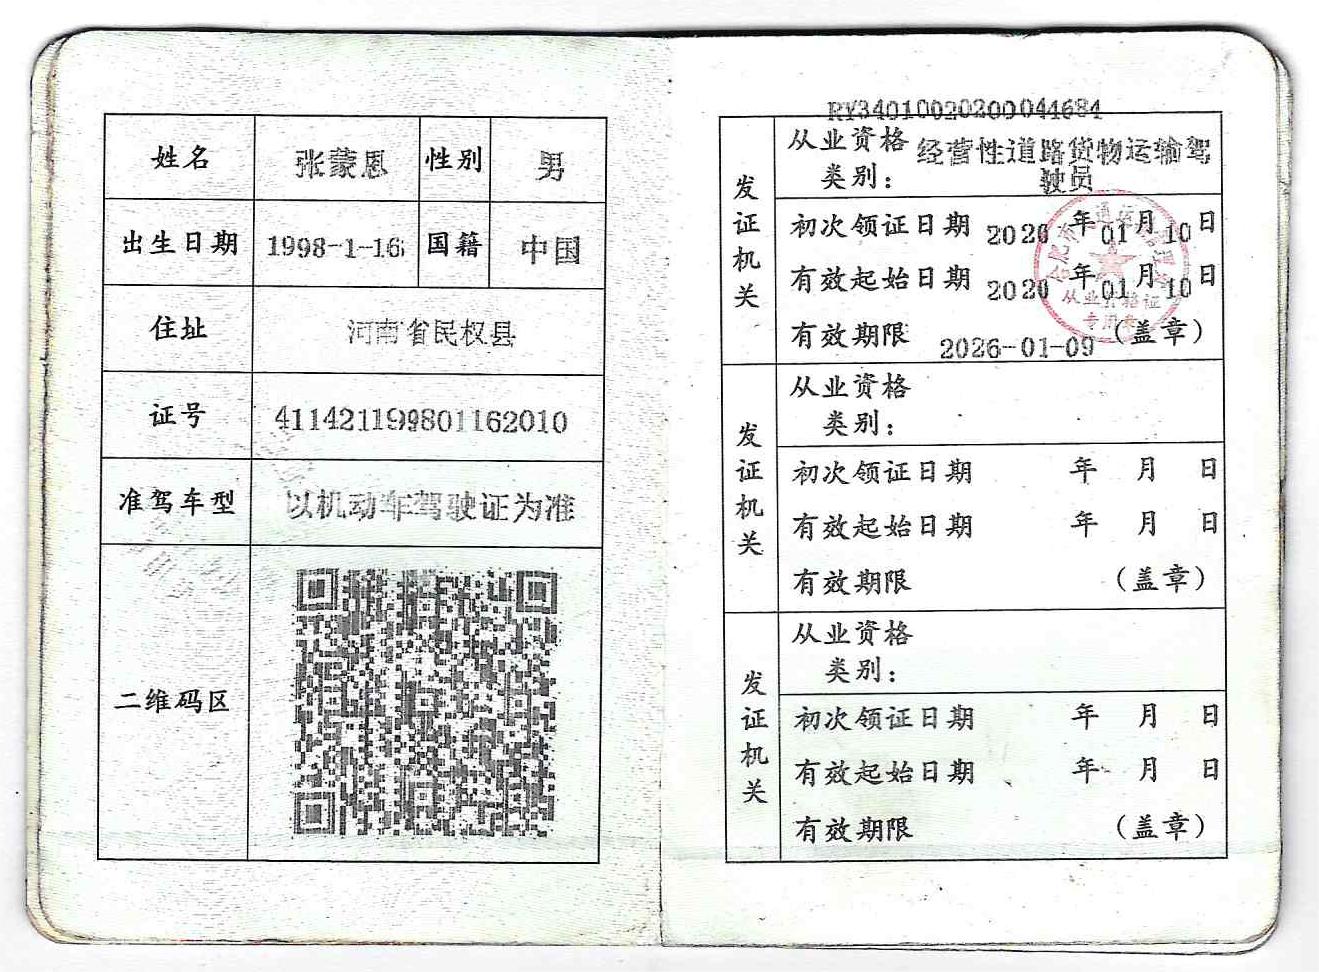 姓名 张蒙恩 性别 男
出生日期 1998-1-16 国籍 中国
住址 河南省民权县
证号 411421199801162010
准驾车型 以机动车驾驶证为准
二维码区
RY34010020200044684
发证机关
从业资格类别： 经营性道路货物运输驾驶员
初次领证日期 2020 年 01 月 10 日
有效起始日期 2020 年 01 月 10 日
有效期限 2026-01-09 （盖章）
从业资格证
专用章
发证机关
从业资格类别：
初次领证日期 年 月 日
有效起始日期 年 月 日
有效期限 （盖章）
发证机关
从业资格类别：
初次领证日期 年 月 日
有效起始日期 年 月 日
有效期限 （盖章）